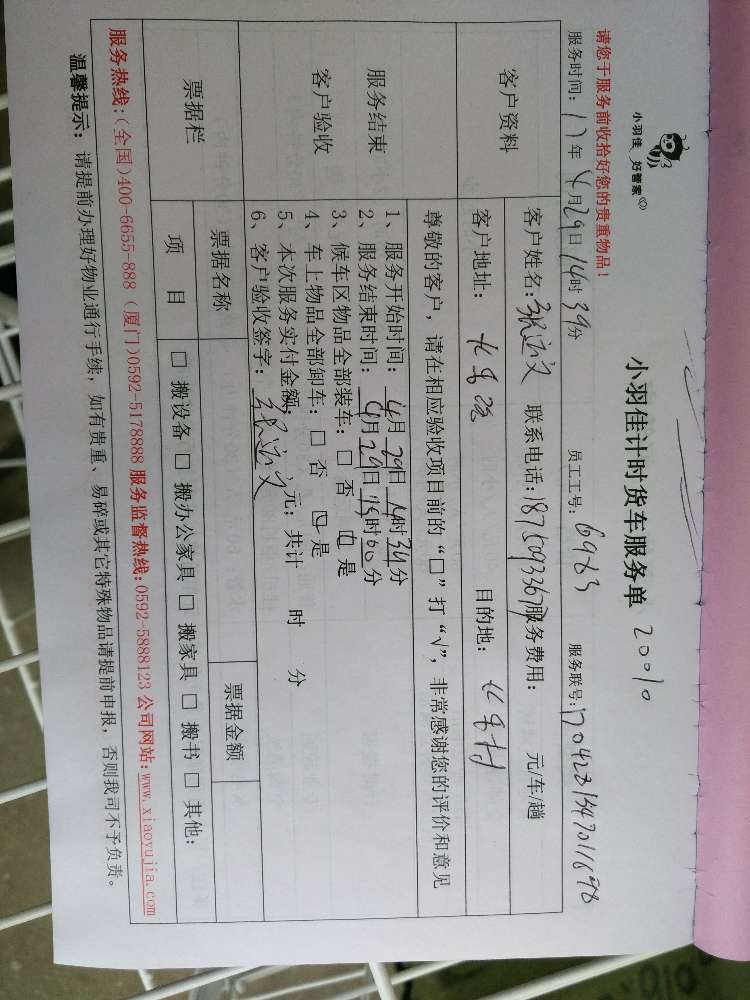 小羽佳 好管家
小羽佳计时货车服务单 20010
请您于服务前收拾好您的贵重物品！
服务时间：17年4月29日14时39分 员工工号：6983 服务联号：
客户资料
客户姓名： 联系电话：18750933673服务费用： 元/车/趟
客户地址： 目的地：
尊敬的客户，请在相应验收项目前的“□”打“√”，非常感谢您的评价和意见
服务结束
客户验收
1、服务开始时间：4月29日14时39分
2、服务结束时间：4月29日15时60分
3、候车区物品全部装车：□ 否 □ 是
4、车上物品全部卸车：□ 否 □ 是
5、本次服务实付金额： 元；共计 时 分
6、客户验收签字：
票据栏
票据名称 票据金额
项 目 □ 搬设备 □ 搬办公家具 □ 搬家具 □ 搬书 □ 其他：
服务热线：(全国)400-6655-888 (厦门)0592-5178888 服务监督热线：0592-5888123 公司网站：www.xiaoyujia.com
温馨提示：请提前办理好物业通行手续，如有贵重、易碎或其它特殊物品请提前申报，否则我司不予负责。